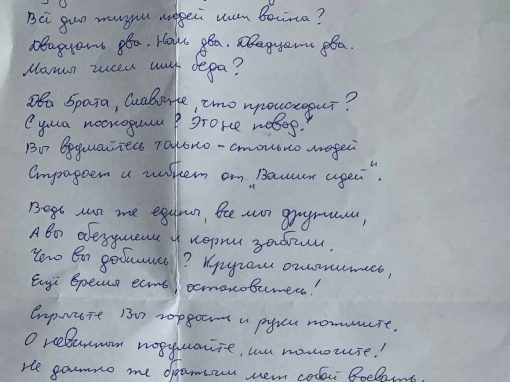 Всё для жизни людей или война?
Двадцать два. Ноль два. Двадцать два.
Магия чисел или беда?
Два Брата, Славяне, что происходит?
С ума посходили? Это не повод!
Вы вдумайтесь только - столько людей
Страдает и гибнет от "Ваших идей".
Ведь мы же едины, все мы дружили,
А вы обезумели и корни забыли.
Чего вы добились? Кругом оглянитесь,
Ещё время есть, остановитесь!
Спрячьте Вы гордость и руки пожмите.
О невинных подумайте, им помогите!
Не должно же братьям меж собой воевать.